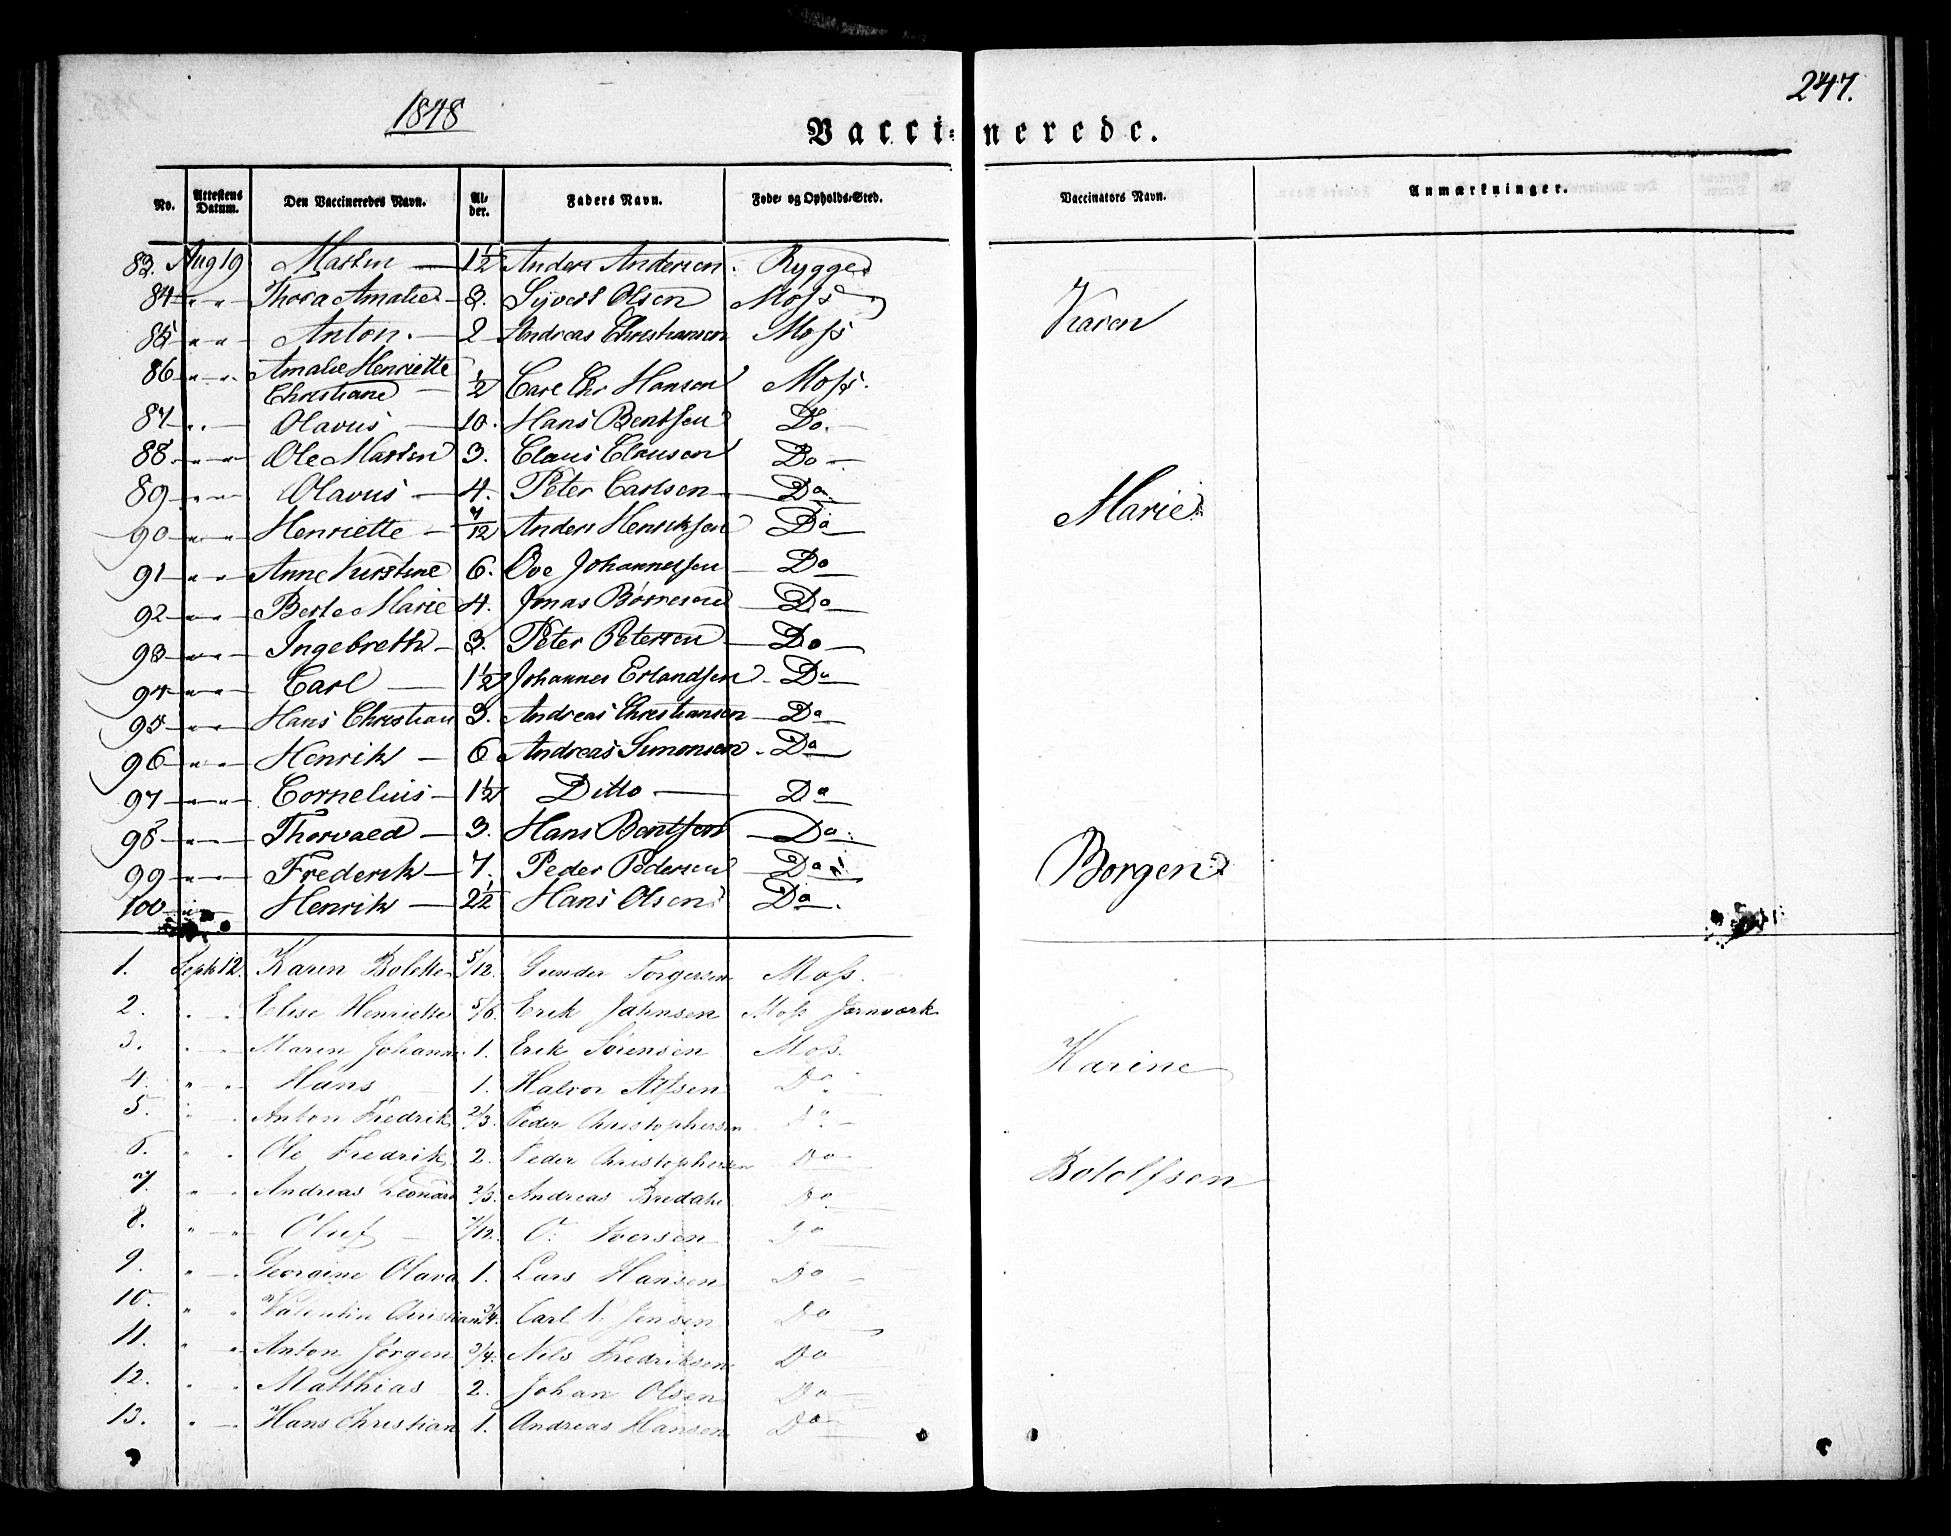 247.
1848
Vacci-nerede.
No. Attestens Datum. Den Vaccineredes Navn. Al-der. Faders Navn. Føde- og Opholds-Sted. Vaccinators Navn. Anmærkninger.
83. Aug 19 Martin 1½ Anders Andersen. Rygge
84 " " Thora Amalie 3. Syvert Olsen Moss
85 " " Anton. 2 Andreas Christiansen Moss
Karen
86 " " Amalie Henriette
Christiane ½ Carl Chr Hansen Moss.
87 " " Olavus 10. Hans Bentsen Do.
88. " " Ole Martin 3. Claus Clausen Do
89 " " Olavus 4. Peter Carlsen Do
Marie
90 " " Henriette 7/12 Anders Henriksen Do
91 " " Anne Kirstine 6. Ove Johannessen Do
92 " " Berte Marie 4. Jonas Børresen Do
93 " " Ingebreth 3. Peter Petersen Do
94 " " Carl 1½ Johannes Erlandsen Do
95 " " Hans Christian 3. Andreas Christiansen Do
96 " " Henrik 6 Andreas Simonsen. Do
97 " " Cornelius 1½ Ditto Do
98 " " Thorvald 3. Hans Bentsen Do.
99 " " Frederik 7. Peder Pedersen Do
Borgen
100 " Henrik 2½ Hans Olsen Do.
1. Septb 12. Karen Bolette 5/12. Gunder Torgersen Moss.
2. " " Elise Henriette 5/6. Erik Jahnsen Moss Jernværk
3. " " Maren Johanne 1. Erik Sörensen Moss.
Karine
4. " " Hans 1. Halvor Alfsen Do
5. " " Anton Fredrik 2/3. Peder Christophersen Do
6. " " Ole Fredrik 2. Peder Christophersen Do
Bottolfsen
7. " " Andreas Leonard 2/3. Andreas Bredahl Do.
8. " " Oluf 7/12. O. Iversen Do
9. " " Georgine Olava 1. Lars Hansen Do
10. " " Valentin Christian 3/4. Carl Jensen Do
11. " " Anton Jørgen 3/4. Nils Fredriksen Do
12. " " Matthias 2. Johan Olsen Do
13. " Hans Christian 1. Andreas Hansen Do